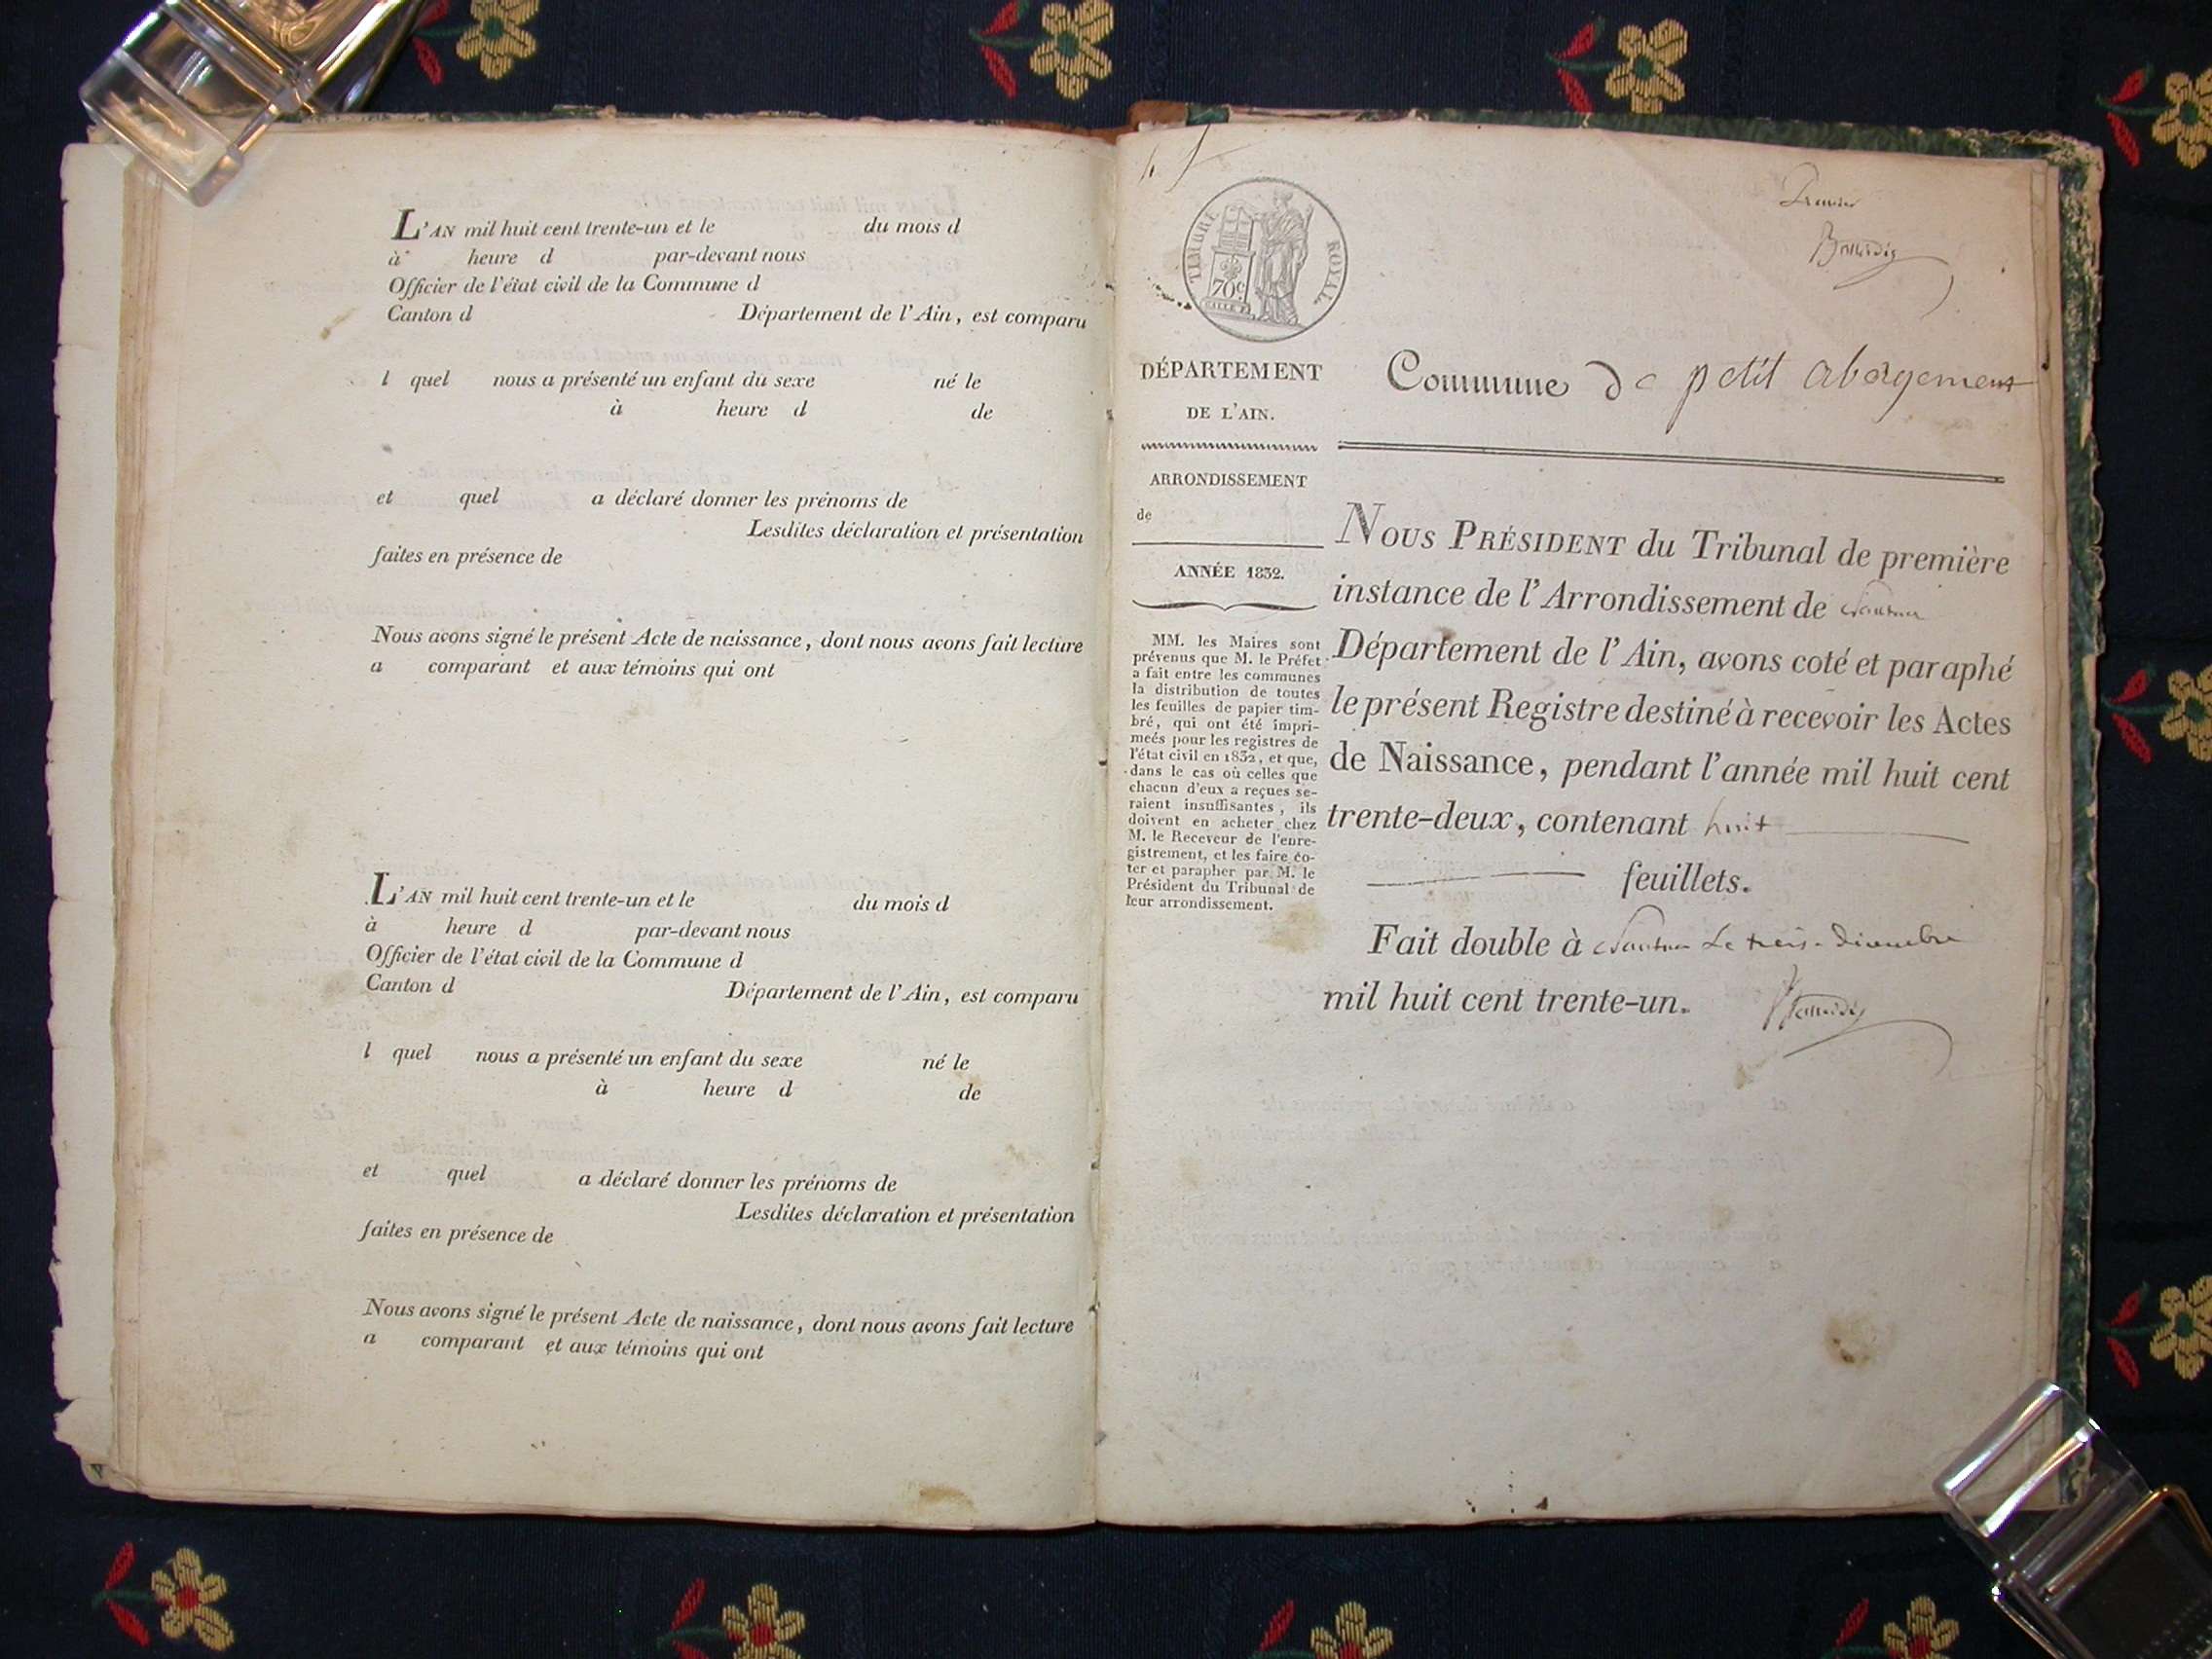 L'AN mil huit cent trente-un et le du mois d
à heure d par-devant nous
Officier de l'état civil de la Commune d
Canton d Département de l'Ain, est comparu
l quel nous a présenté un enfant du sexe né le
à heure d de
et quel a déclaré donner les prénoms de
Lesdites déclaration et présentation
faites en présence de
Nous avons signé le présent Acte de naissance, dont nous avons fait lecture
a comparant et aux témoins qui ont
L'AN mil huit cent trente-un et le du mois d
à heure d par-devant nous
Officier de l'état civil de la Commune d
Canton d Département de l'Ain, est comparu
l quel nous a présenté un enfant du sexe né le
à heure d de
et quel a déclaré donner les prénoms de
Lesdites déclaration et présentation
faites en présence de
Nous avons signé le présent Acte de naissance, dont nous avons fait lecture
a comparant et aux témoins qui ont
TIMBRE ROYAL
70c
Premier
DÉPARTEMENT
DE L'AIN.
ARRONDISSEMENT
de
ANNÉE 1832.
MM. les Maires sont
prévenus que M. le Préfet
a fait entre les communes
la distribution de toutes
les feuilles de papier tim-
bré, qui ont été impri-
meés pour les registres de
l'état civil en 1832, et que,
dans le cas où celles que
chacun d'eux a reçues se-
raient insuffisantes, ils
doivent en acheter chez
M. le Receveur de l'enre-
gistrement, et les faire co-
ter et parapher par M. le
Président du Tribunal de
leur arrondissement.
Commune de petit abergement
NOUS PRÉSIDENT du Tribunal de première
instance de l'Arrondissement de Nantua
Département de l'Ain, avons coté et paraphé
le présent Registre destiné à recevoir les Actes
de Naissance, pendant l'année mil huit cent
trente-deux, contenant huit
feuillets.
Fait double à Nantua Le trois Décembre
mil huit cent trente-un.